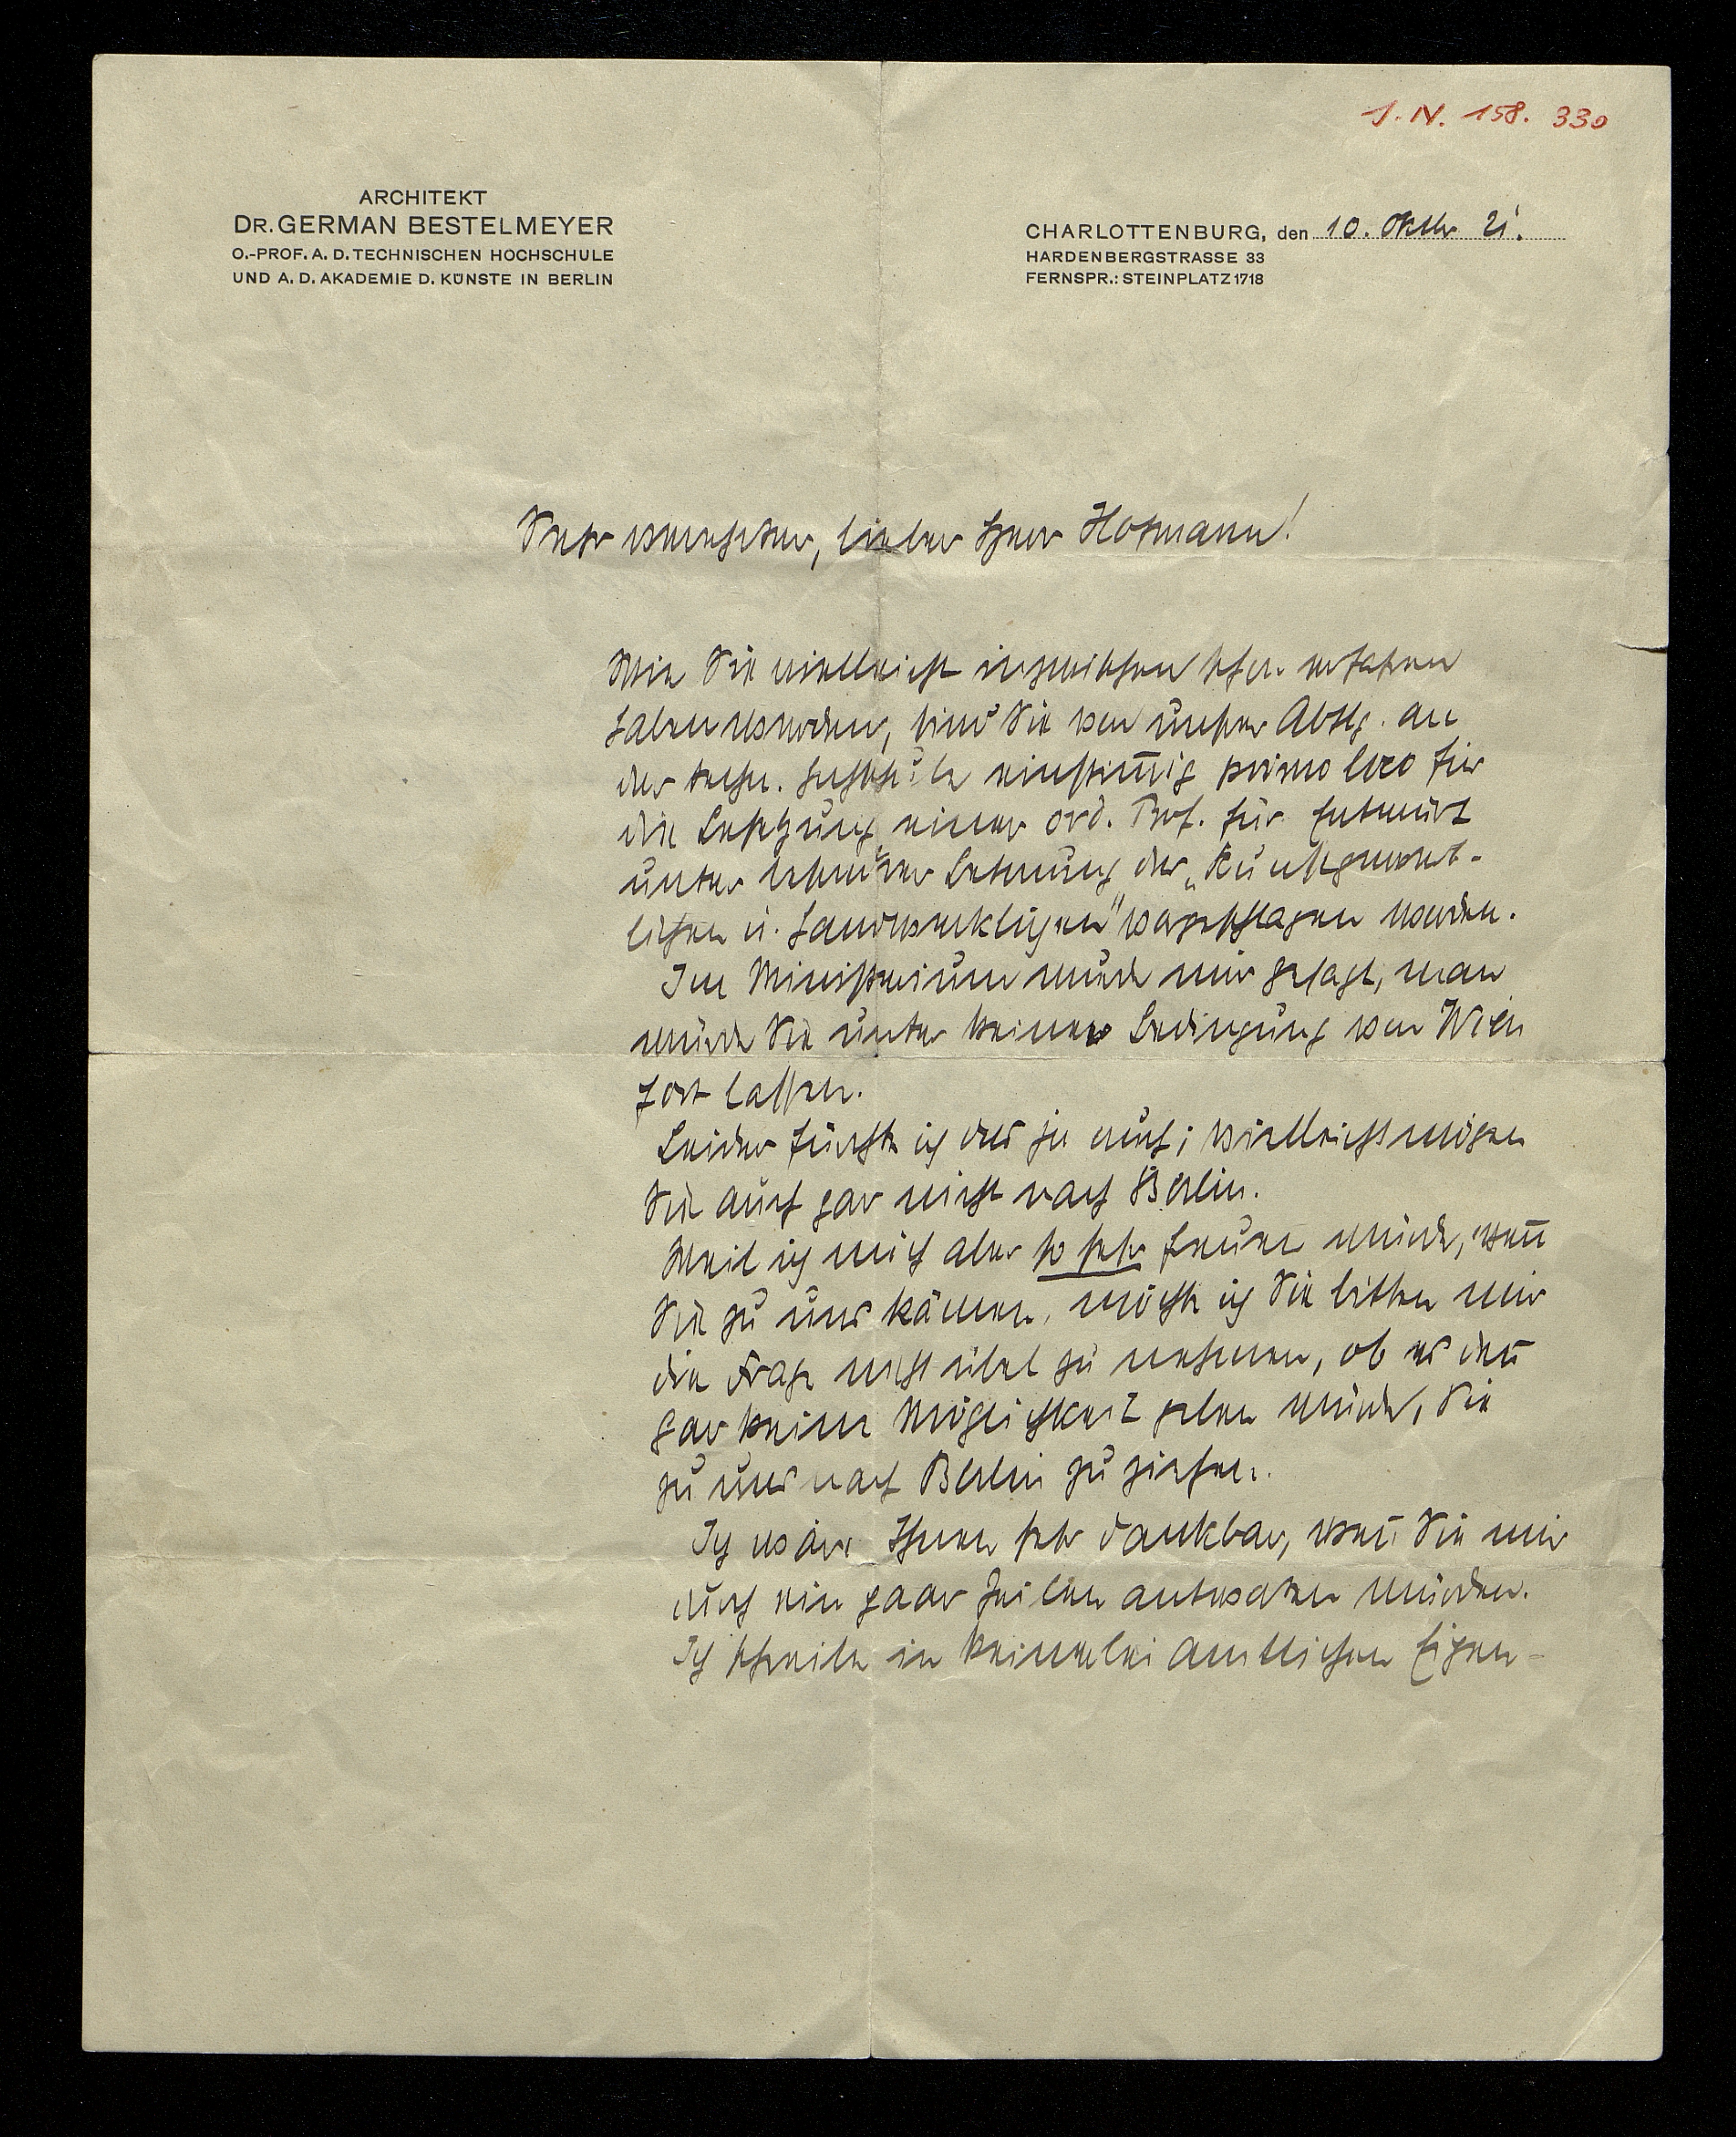 J. N. 158. 330
ARCHITEKT
DR. GERMAN BESTELMEYER
O.-PROF. A. D. TECHNISCHEN HOCHSCHULE
UND A. D. AKADEMIE D. KÜNSTE IN BERLIN
CHARLOTTENBURG, den 10. Oktbr 21.
HARDENBERGSTRASSE 33
FERNSPR.: STEINPLATZ 1718
Sehr verehrter, lieber Herr Hofmann!
Wie Sie vielleicht inzwischen schon erfahren
haben werden, sind Sie von unserer Abtlg. an
der techn. Hochschule einstimmig primo loco für
die Besetzung einer ord. Prof. für Entwürfe
unter besonderer Betonung des „Kunstgewerb-
lichen u. Handwerklichen" vorgeschlagen worden.
Im Ministerium wurde mir gesagt, man
würde Sie unter keiner Bedingung von Wien
fort lassen.
Leider fürchte ich das ja auch; vielleicht mögen
Sie auch gar nicht nach Berlin.
Weil ich mich aber so sehr freuen würde, wen̅
Sie zu uns kämen, möchte ich Sie bitten mir
die Frage nicht übel zu nehmen, ob es den̅
gar keine Möglichkeit geben würde, Sie
zu uns nach Berlin zu ziehen.
Ich wäre Ihnen sehr dankbar, wen̅ Sie mir
durch ein paar Zeilen antworten würden.
Ich schreibe in keinerlei amtlichen Eigen-